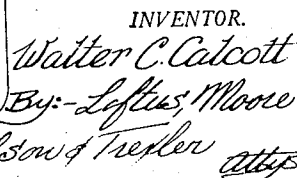 INVENTOR.
Walter C. Calcott
By:- Loftus, Moore
son & Trexler
attys